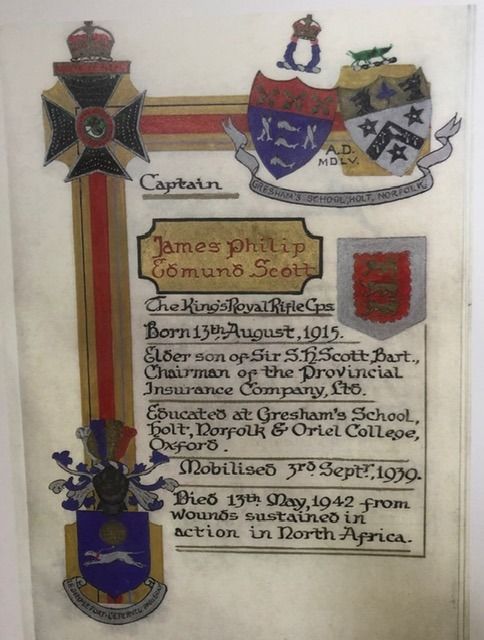 A.D.
MDLV.
GRESHAM'S SCHOOL, HOLT, NORFOLK
Captain
James Philip
Edmund Scott
The King's Royal Rifle Cps
Born 13th August, 1915.
Elder son of Sir S.H. Scott Bart.,
Chairman of the Provincial
Insurance Company, Ltd.
Educated at Gresham's School,
Holt, Norfolk & Oriel College,
Oxford.
Mobilised 3rd Septr, 1939.
Died 13th May, 1942 from
wounds sustained in
action in North Africa.